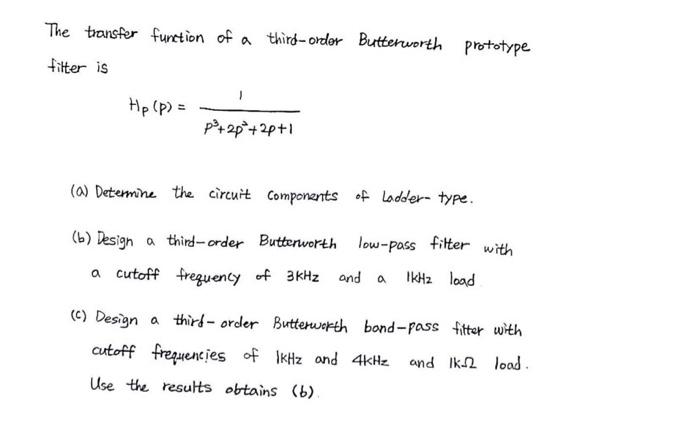 The transfer function of a third-order Butterworth prototype
filter is
Hp(p) = 1 / p³+2p²+2p+1
(a) Determine the circuit components of ladder-type.
(b) Design a third-order Butterworth low-pass filter with
a cutoff frequency of 3KHz and a 1KHz load
(c) Design a third-order Butterworth band-pass filter with
cutoff frequencies of 1KHz and 4KHz and 1KΩ load.
Use the results obtains (b).